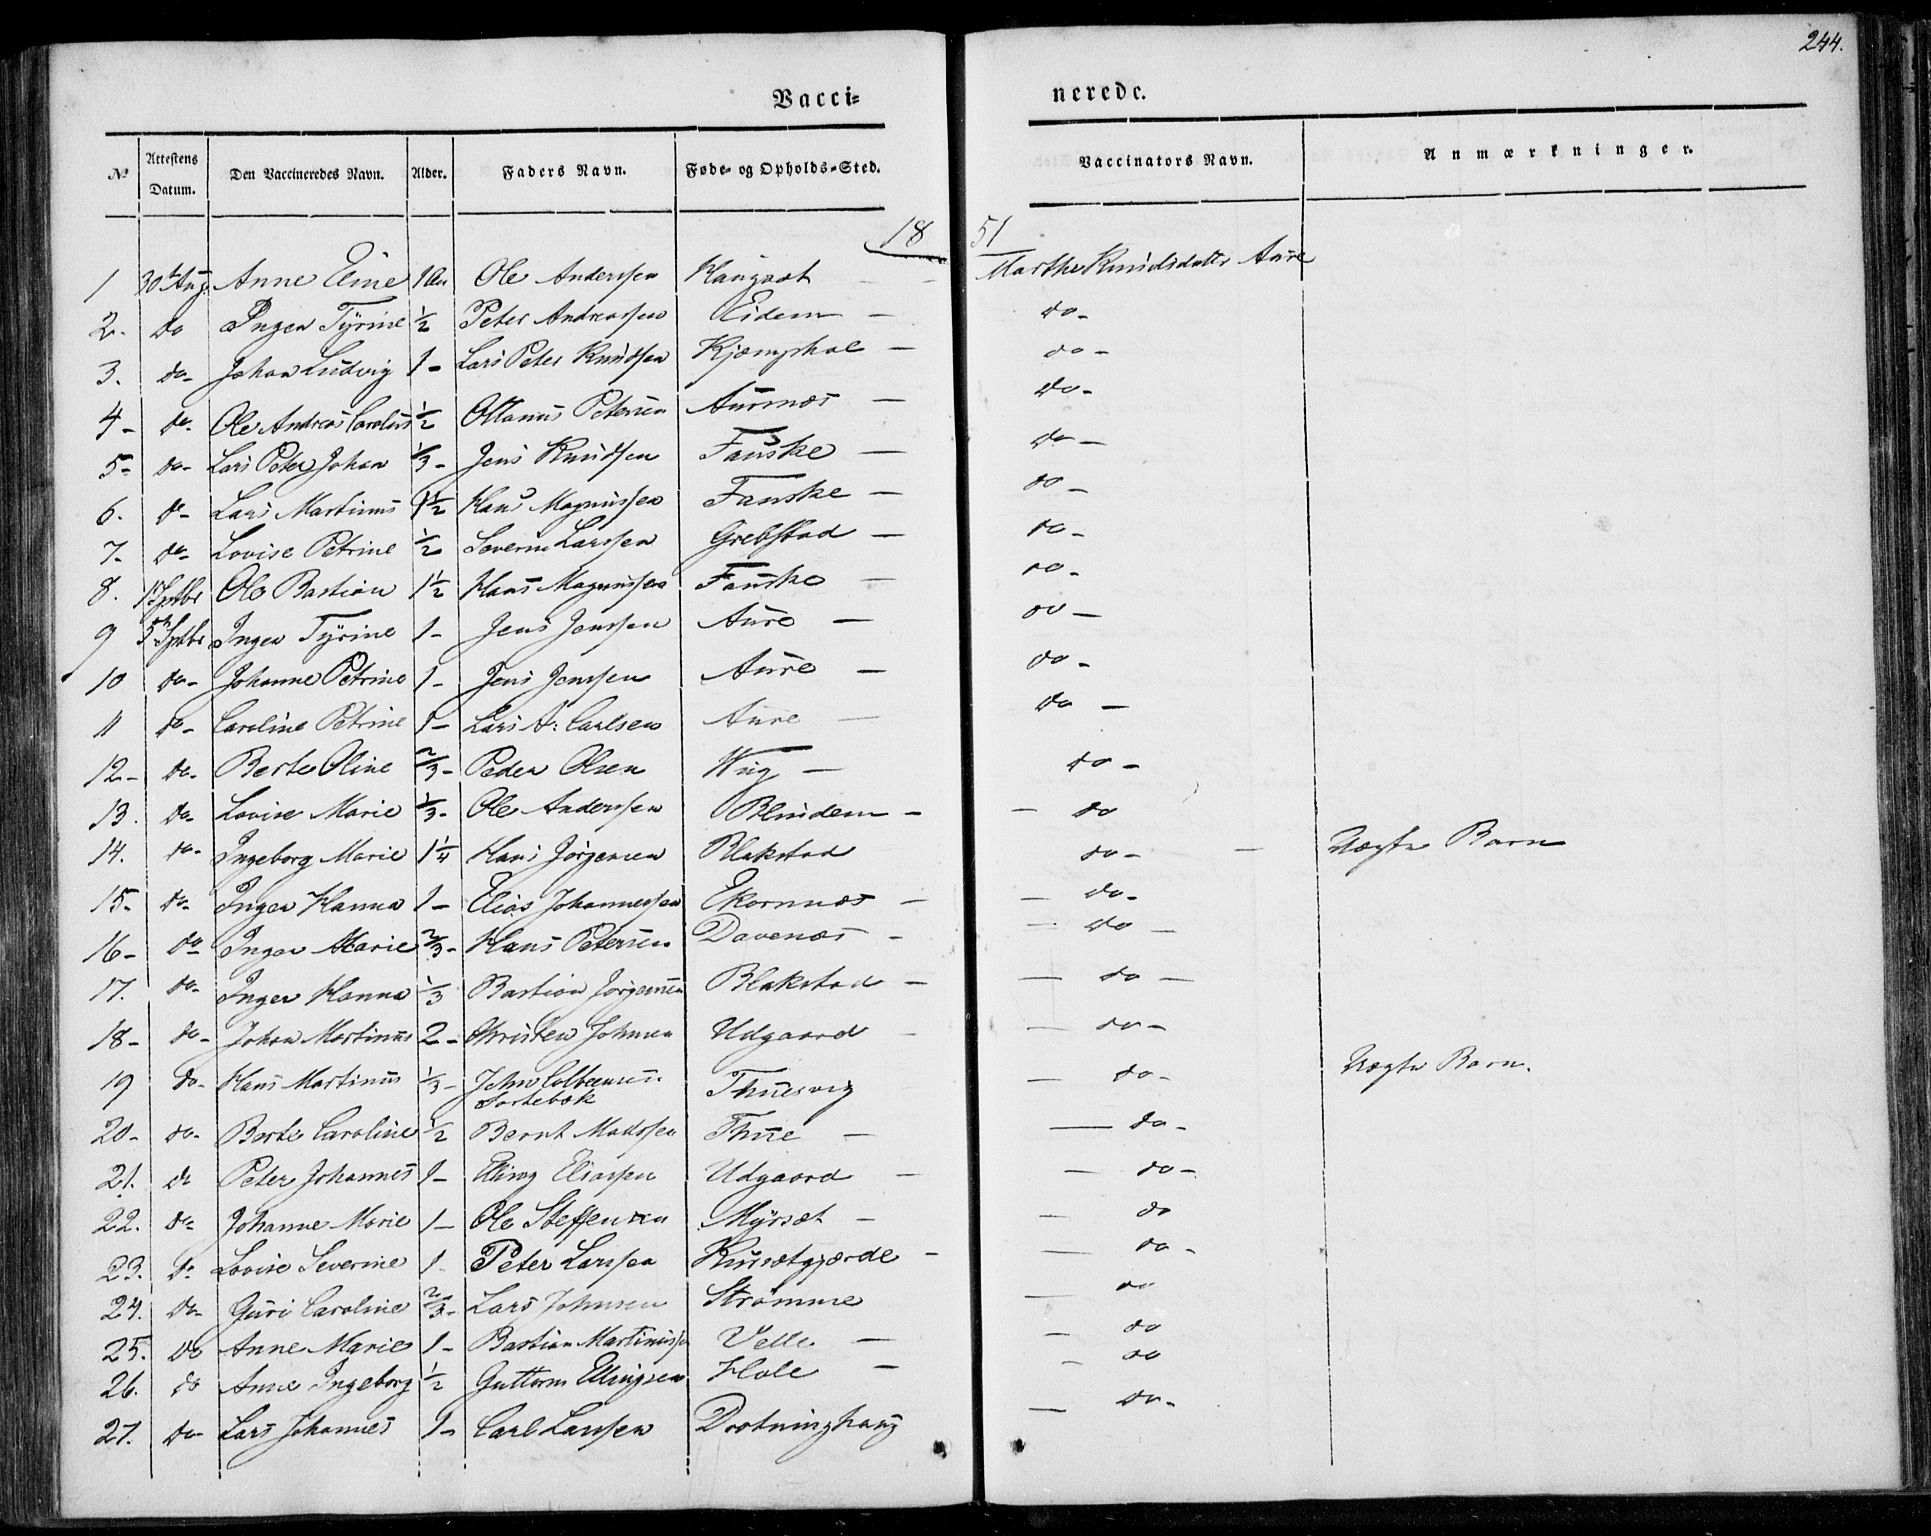 244.
Vacci= nerede.
No Attestens Datum. Den Vaccineredes Navn. Alder. Faders Navn. Føde= og Opholds=Sted. Vaccinators Navn. Anmærkninger.
18 51
1 30t Aug. Anne Eline 1 Ole Anderssen Haugsæt - - Marthe Knudsdatter Aure
2. do Inger Tyrine 1/2 Peter Andreassen Eidem - do-
3. do- Johan Ludvig 1- Lars Peter Knudsen Kjæmphol - do-
4- do. Ole Andreas Carolus 1/2 Ottanus Petersen Aursnæs - do-
5- do- Lars Peter Johan 1/3- Jens Knudsen Fauske - do-
6. do- Lars Martinus 1 1/2 Hans Magnussen Fauske - do-
7- do- Lovise Petrine 1/2 Severin Larssen Grebstad - do-
8. 1 Septbr Ole Bastian 1 1/2 Hans Magnussen Fauske - do-
9 5te Septbr Inger Tyrine 1- Jens Jenssen Aure - do-
10 do- Johanne Petrine 1- Jens Jenssen Aure - do-
11 do- Caroline Petrine 1- Lars A: Carlsen Aure - do-
12- do- Berte Oline 2/3- Peder Olsen Wiig - do-
13. do- Lovise Marie 1/3- Ole Anderssen Blindem - - do
14. do- Ingeborg Marie 1 1/4 Hans Jørgensen Blakstad do- - Uægte Barn
15- do- Inger Hanna 1- Elias Johannessen Ekornnæs - - do-
16- do- Inger Marie 2/3- Hans Petersen Davenæs - - do-
17. do- Inger Hanna 1/3 Bastian Jørgensen Blakstad - - do-
18- do- Johan Martinus 2- Christen Johnsen Udgaard - - do-
19 do- Hans Martinus 1/3- John Colbeensen Sortebæk Thuesvig - do- Uægte Barn.
20- do- Berte Caroline 1/2 Bernt Madssen Thue - - do-
21. do Peter Johannes 1- Elling Eliassen Udgaard - - do-
22. do- Johanne Marie 1- Ole Steffensen Myrsæt - - do
23. do Lovise Severine 1. Peter Larssen Kursætgjærde - - do-
24. do- Guri Caroline 2/3- Lars Johnsen Strømme - do
25. do Anne Marie 1- Bastian Martinussen Velle - - do
26. do Anne Ingeborg 1/2 Guttorm Ellingsen Hole - - do
27. do- Lars Johannes 1- Carl Larssen Drotninghaug - do-